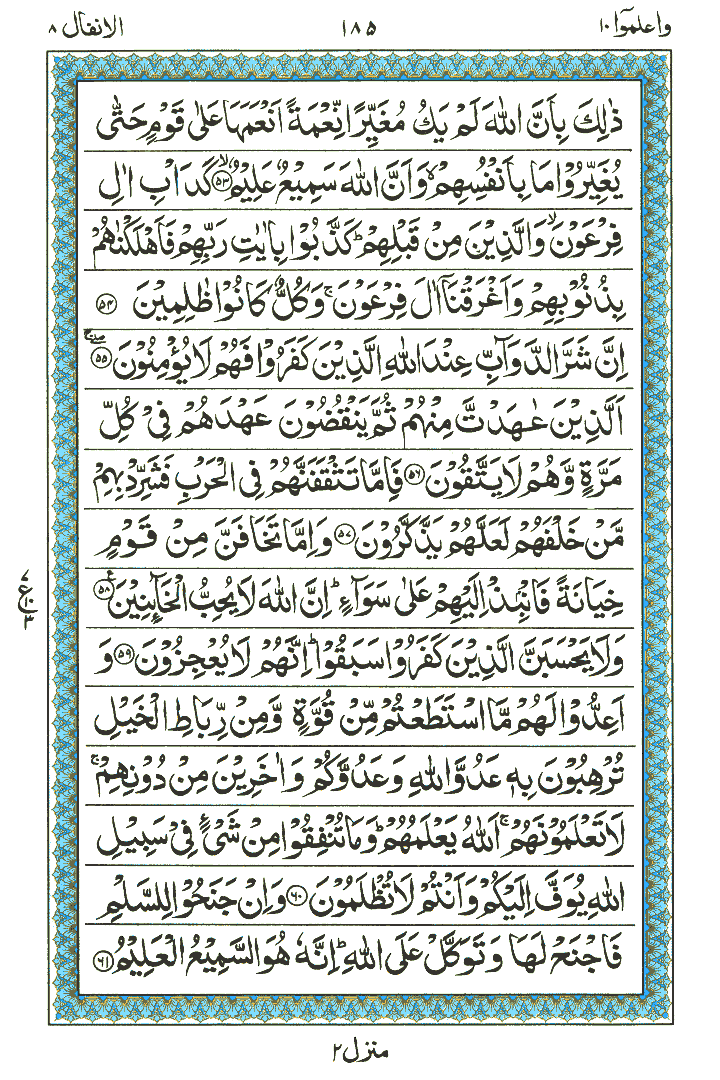 واعلموٓا ١٠ ١٨٥ الانفال ٨
ذٰلِكَ بِاَنَّ اللّٰهَ لَمْ يَكُ مُغَيِّرًا نِّعْمَةً اَنْعَمَهَا عَلٰى قَوْمٍ حَتّٰى
يُغَيِّرُوْا مَا بِاَنْفُسِهِمْۙ وَاَنَّ اللّٰهَ سَمِيْعٌ عَلِيْمٌۙ ﴿٥٣﴾ كَدَاْبِ اٰلِ
فِرْعَوْنَۙ وَالَّذِيْنَ مِنْ قَبْلِهِمْؕ كَذَّبُوْا بِاٰيٰتِ رَبِّهِمْ فَاَهْلَكْنٰهُمْ
بِذُنُوْبِهِمْ وَاَغْرَقْنَاۤ اٰلَ فِرْعَوْنَۚ وَكُلٌّ كَانُوْا ظٰلِمِيْنَ ﴿٥٤﴾
اِنَّ شَرَّ الدَّوَآبِّ عِنْدَ اللّٰهِ الَّذِيْنَ كَفَرُوْا فَهُمْ لَا يُؤْمِنُوْنَۖۚ ﴿٥٥﴾
اَلَّذِيْنَ عٰهَدْتَّ مِنْهُمْ ثُمَّ يَنْقُضُوْنَ عَهْدَهُمْ فِيْ كُلِّ
مَرَّةٍ وَّهُمْ لَا يَتَّقُوْنَ ﴿٥٦﴾ فَاِمَّا تَثْقَفَنَّهُمْ فِي الْحَرْبِ فَشَرِّدْ بِهِمْ
مَّنْ خَلْفَهُمْ لَعَلَّهُمْ يَذَّكَّرُوْنَ ﴿٥٧﴾ وَاِمَّا تَخَافَنَّ مِنْ قَوْمٍ
خِيَانَةً فَانْۢبِذْ اِلَيْهِمْ عَلٰى سَوَآءٍؕ اِنَّ اللّٰهَ لَا يُحِبُّ الْخَآئِنِيْنَ ﴿٥٨﴾ ع
٧
١٠
٣
وَلَا يَحْسَبَنَّ الَّذِيْنَ كَفَرُوْا سَبَقُوْاؕ اِنَّهُمْ لَا يُعْجِزُوْنَ ﴿٥٩﴾ وَ
اَعِدُّوْا لَهُمْ مَّا اسْتَطَعْتُمْ مِّنْ قُوَّةٍ وَّمِنْ رِّبَاطِ الْخَيْلِ
تُرْهِبُوْنَ بِهٖ عَدُوَّ اللّٰهِ وَعَدُوَّكُمْ وَاٰخَرِيْنَ مِنْ دُوْنِهِمْۚ
لَا تَعْلَمُوْنَهُمْۚ اَللّٰهُ يَعْلَمُهُمْؕ وَمَا تُنْفِقُوْا مِنْ شَيْءٍ فِيْ سَبِيْلِ
اللّٰهِ يُوَفَّ اِلَيْكُمْ وَاَنْتُمْ لَا تُظْلَمُوْنَ ﴿٦٠﴾ وَاِنْ جَنَحُوْا لِلسَّلْمِ
فَاجْنَحْ لَهَا وَتَوَكَّلْ عَلَى اللّٰهِؕ اِنَّهٗ هُوَ السَّمِيْعُ الْعَلِيْمُ ﴿٦١﴾
منزل ٢